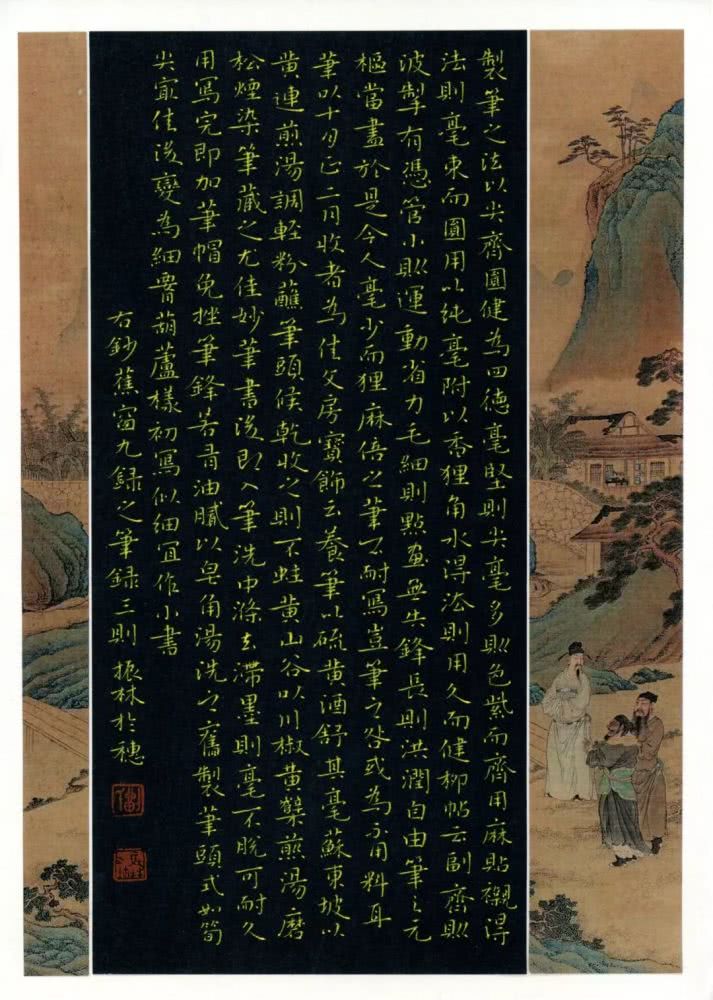 製筆之法以尖齊圓健為四德毫堅則尖毫多則色紫而齊用麻貼襯得
法則毫束而圓用以純毫附以香狸角水得法則用久而健柳帖云副齊則
波掣有憑管小則運動省力毛細則點畫無失鋒長則洪潤自由筆之元
樞當盡於是今人毫少而狸麻倍之筆不耐寫豈筆之咎或為不用料耳
筆以十月正二月收者為佳文房寶飾云養筆以硫黃酒舒其毫蘇東坡以
黃連煎湯調輕粉蘸筆頭候乾收之則不蛀黃山谷以川椒黃檗煎湯磨
松煙染筆藏之尤佳妙筆書後即入筆洗中滌去滯墨則毫不脫可耐久
用寫完即加筆帽免挫筆鋒若有油膩以皂角湯洗之舊製筆頭式如筍
尖最佳後變為細腰葫蘆樣初寫似細宜作小書
右鈔蕉窗九錄之筆錄三則 振林於穗